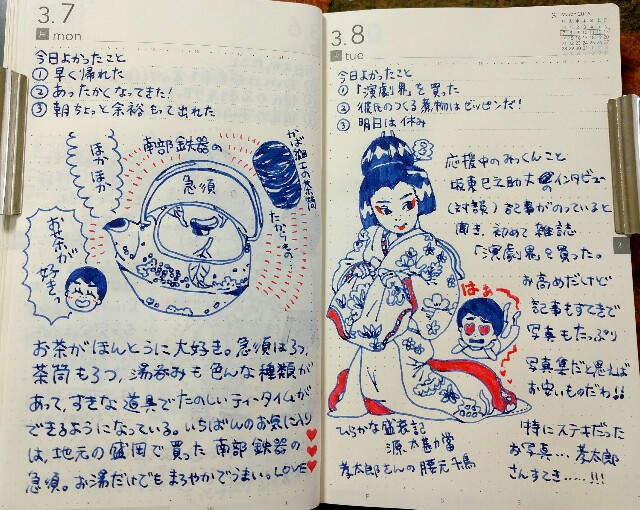 3.7
mon
今日よかったこと
① 早く帰れた
② あったかくなってきた!
③ 朝ちょっと余裕もって出れた
ぽかぽか
南部鉄器の
急須
かば富士の茶筒
たからもの…
お茶が好きっ
お茶がほんとうに大好き。急須は3つ、
茶筒も3つ、湯呑みも色んな種類が
あって、すきな道具でたのしいティータイムが
できるようになっている。いちばんのお気に入り
は、地元の盛岡で買った南部鉄器の
急須。お湯だけでもまろやかでうまい。LOVE
3.8
tue
今日よかったこと
① 「演劇界」を買った
② 彼氏のつくる煮物はゼッピンだ!
③ 明日は休み
応援中のみっくんこと
坂東巳之助丈のインタビュー
(対談)記事がのっていると
聞き、初めて雑誌
「演劇界」を買った。
お高めだけど
記事もすてきで
写真もたっぷり
写真集だと思えば
お安いものだわ!!
はぁ
ひらかな盛衰記
源太勘當
孝太郎さんの腰元千鳥
特にステキだった
お写真…孝太郎
さんすてき……!!!
7